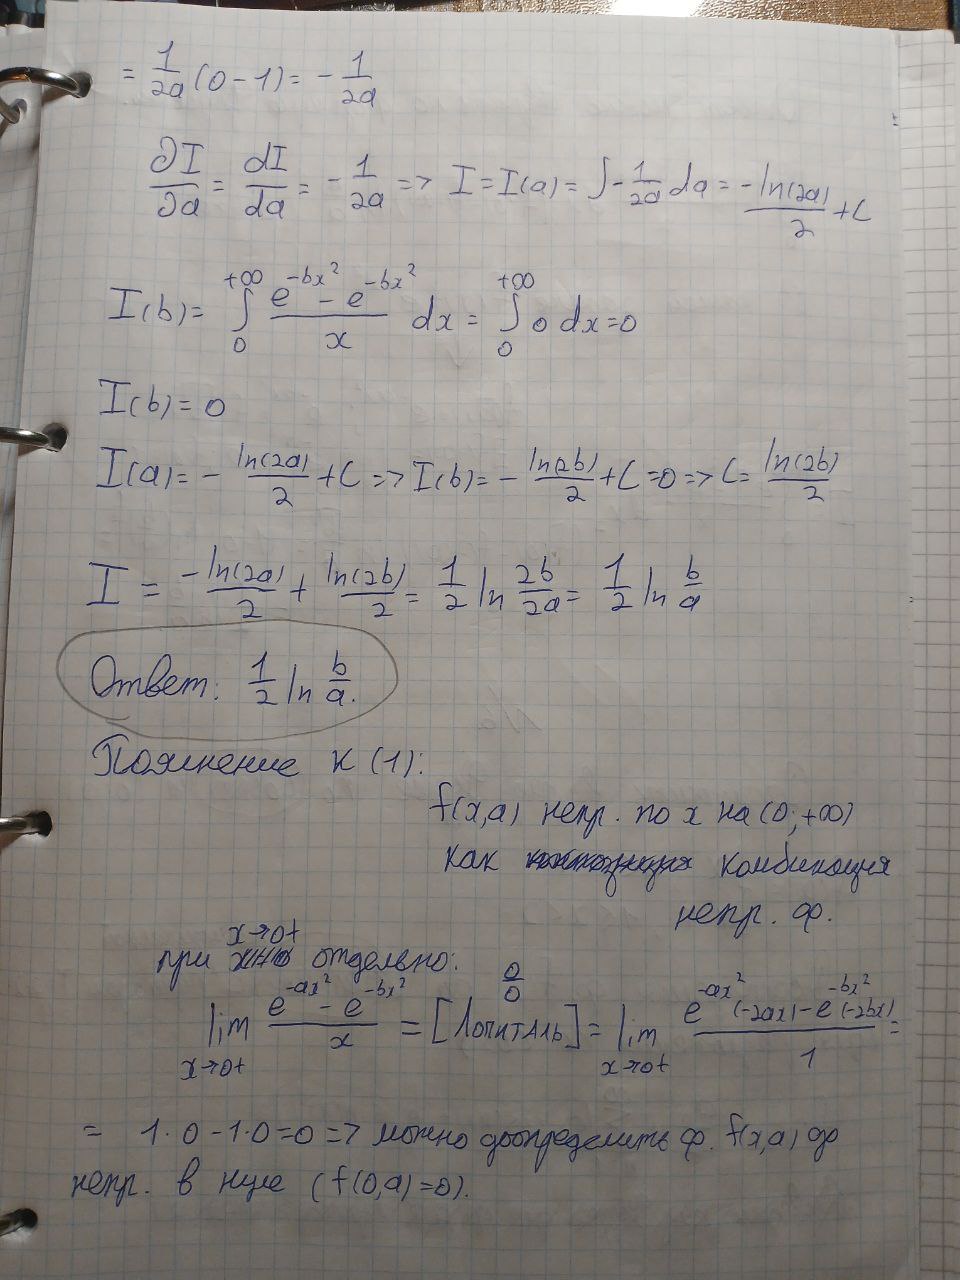 = 1/2a (0-1) = - 1/2a
∂I/∂a = dI/da = - 1/2a => I = I(a) = ∫ - 1/2a da = - ln(2a)/2 + C
I(b) = ∫₀^{+∞} (e^{-bx²} - e^{-bx²})/x dx = ∫₀^{+∞} 0 dx = 0
I(b) = 0
I(a) = - ln(2a)/2 + C => I(b) = - ln(2b)/2 + C = 0 => C = ln(2b)/2
I = - ln(2a)/2 + ln(2b)/2 = 1/2 ln 2b/2a = 1/2 ln b/a
Ответ: 1/2 ln b/a.
Пояснение к (1):
f(x,a) непр. по x на (0; +∞)
как комбинация
непр. ф.
при x→0+ отдельно:
lim_{x→0+} (e^{-ax²} - e^{-bx²})/x = [Лопиталь] 0/0 = lim_{x→0+} (e^{-ax²}(-2ax) - e^{-bx²}(-2bx))/1 =
= 1·0 - 1·0 = 0 => можно доопределить ф. f(x,a) до
непр. в нуле (f(0,a) = 0).